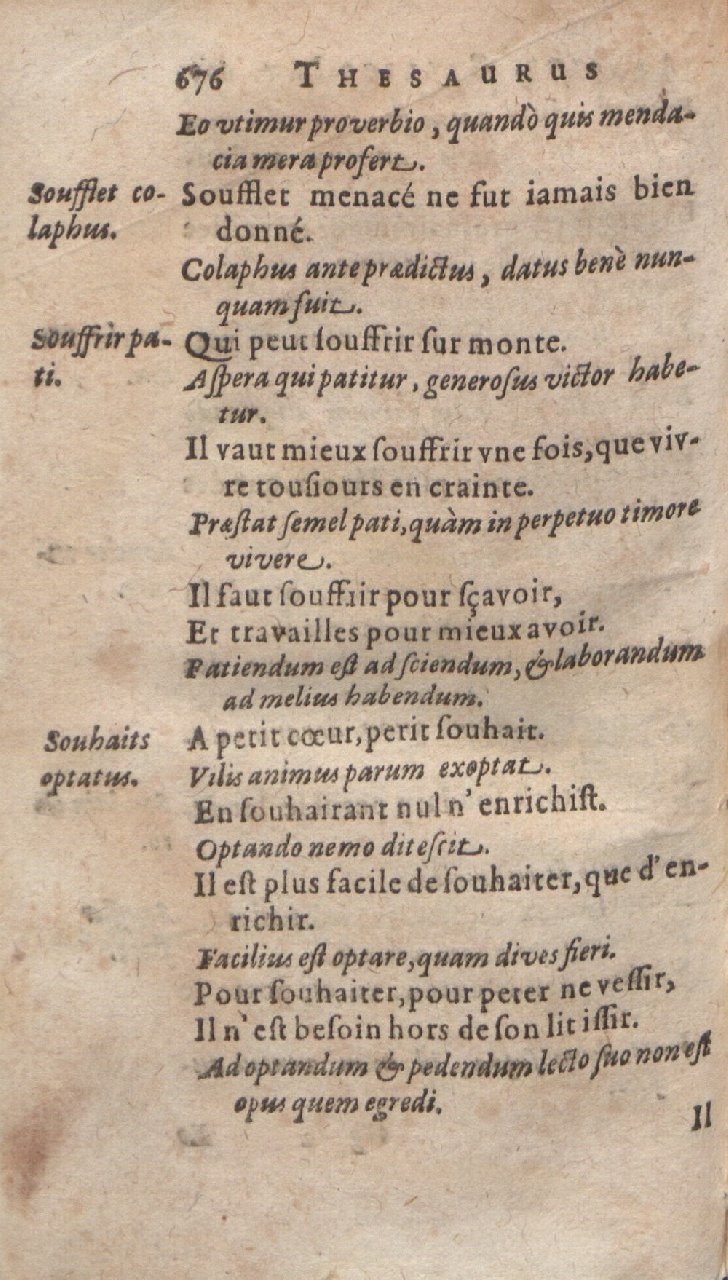 676 THESAURUS
Eo vtimur proverbio, quandò quis menda-
cia mera profert.
Soufflet co- Soufflet menacé ne fut iamais bien
laphus. donné.
Colaphus ante prædictus, datus benè nun-
quam fuit.
Souffrir pa- Qui peut souffrir surmonte.
ti. Aspera qui patitur, generosus victor habe-
tur.
Il vaut mieux souffrir vne fois, que viv-
re tousiours en crainte.
Præstat semel pati, quàm in perpetuo timore
vivere.
Il faut souffrir pour sçavoir,
Et travailles pour mieux avoir.
Patiendum est ad sciendum, & laborandum
ad melius habendum.
Souhaits A petit cœur, petit souhait.
optatus. Vilis animus parum exoptat.
En souhaitant nul n'enrichist.
Optando nemo ditescit.
Il est plus facile de souhaiter, que d'en-
richir.
Facilius est optare, quam dives fieri.
Pour souhaiter, pour peter ne vessir,
Il n'est besoin hors de son lit issir.
Ad optandum & pedendum lecto suo non est
opus quem egredi.
Il